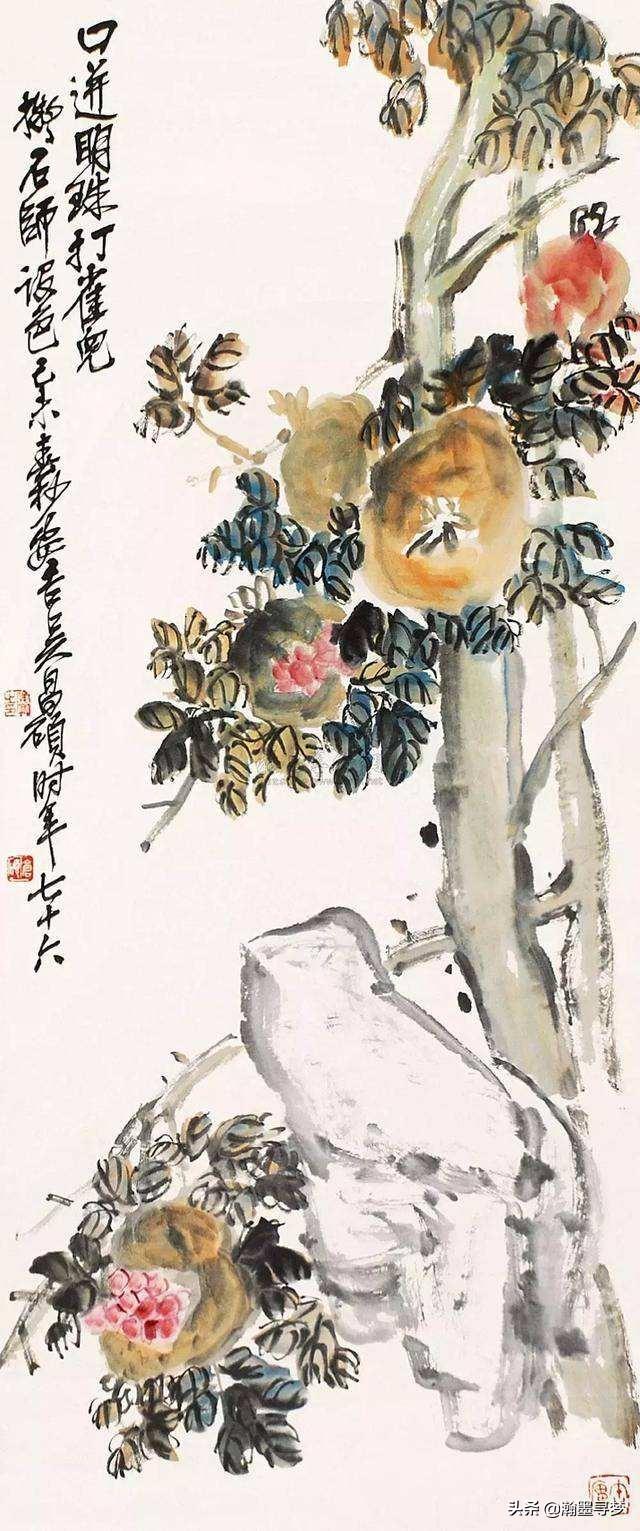 口迸明珠打雀兒
擬石師設色己未春杪安吉吴昌碩时年七十六
头条 @瀚墨寻梦